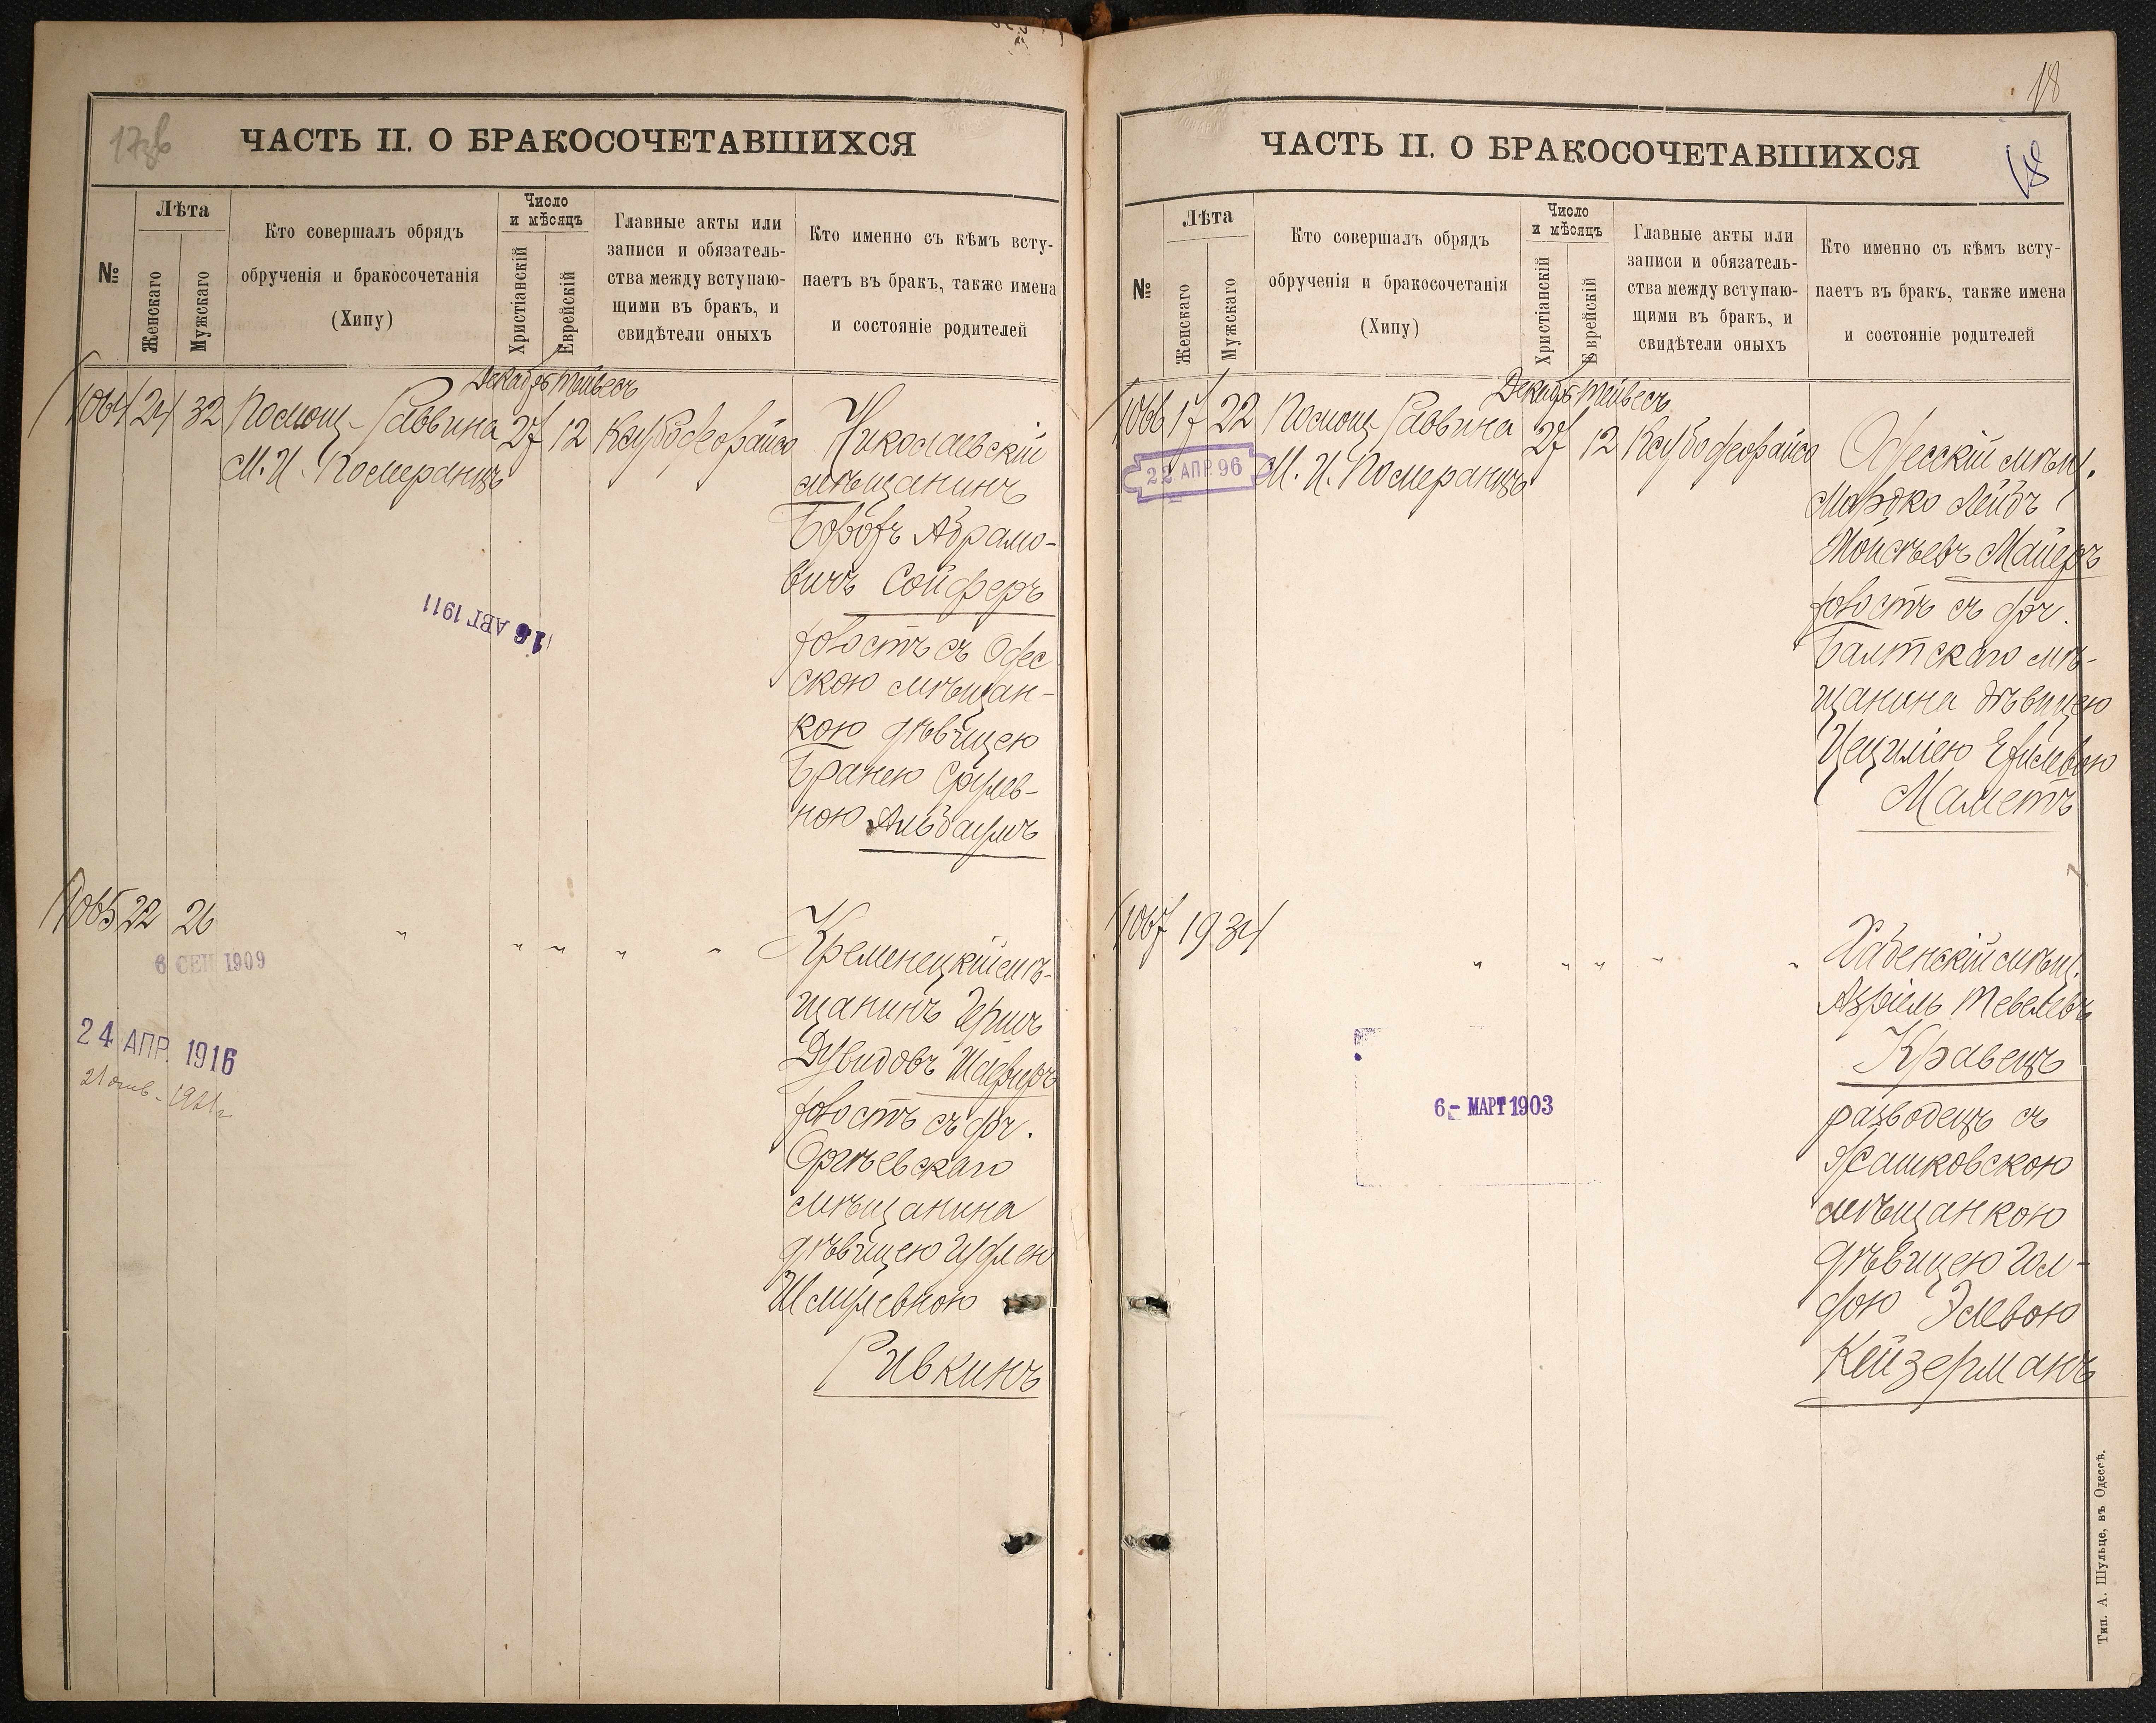 17зв
ЧАСТЬ II. О БРАКОСОЧЕТАВШИХСЯ
№
Лѣта
Женскаго
Мужскаго
Кто совершалъ обрядъ
обрученія и бракосочетанія
(Хипу)
Число
и мѣсяцъ
Христіанскій
Еврейскій
Главные акты или
записи и обязатель-
ства между вступаю-
щими въ бракъ, и
свидѣтели оныхъ
Кто именно съ кѣмъ всту-
паетъ въ бракъ, также имена
и состояніе родителей
Декабрь Тейвесъ
1064 24 32 Помощ. Раввина 27 12 Ксубо
М. И. Померанцъ
Николаевскій
мѣщанинъ
Абрамо-
вичъ Сойферъ
холостъ съ Одес
скою мѣщан-
кою дѣвицею
Бранею Срулев-
ною Альбаумъ
16 АВГ 1911
1065 22 26 " " " " "
Кременецкій мѣ-
щанинъ Гершъ
Дувидовъ
холостъ съ доч.
Оргѣевскаго
мѣщанина
дѣвицею
Шмулевною
Ривкинъ
6 СЕН 1909
24 АПР. 1916
1921 г
18
ЧАСТЬ II. О БРАКОСОЧЕТАВШИХСЯ
18
№
Лѣта
Женскаго
Мужскаго
Кто совершалъ обрядъ
обрученія и бракосочетанія
(Хипу)
Число
и мѣсяцъ
Христіанскій
Еврейскій
Главные акты или
записи и обязатель-
ства между вступаю-
щими въ бракъ, и
свидѣтели оныхъ
Кто именно съ кѣмъ всту-
паетъ въ бракъ, также имена
и состояніе родителей
Декабрь Тейвесъ
1066 17 22 Помощ. Раввина 27 12 Ксубо
22 АПР. 96
М. И. Померанцъ
Одесскій мѣщ.
Мордко Лейбъ
Моисѣевъ Майеръ
холостъ съ доч.
Балтскаго мѣ-
щанина дѣвицею
Цецилiею
Маметъ
1067 19 34 " " " " "
Хабенскій мѣщ.
Азріель Тевелевъ
Кравецъ
разводецъ съ
Рашковскою
мѣщанкою
дѣвицею Гол-
дою Элевою
Кейзерманъ
6 - МАРТ 1903
Тип. А. Шульце, въ Одессѣ.